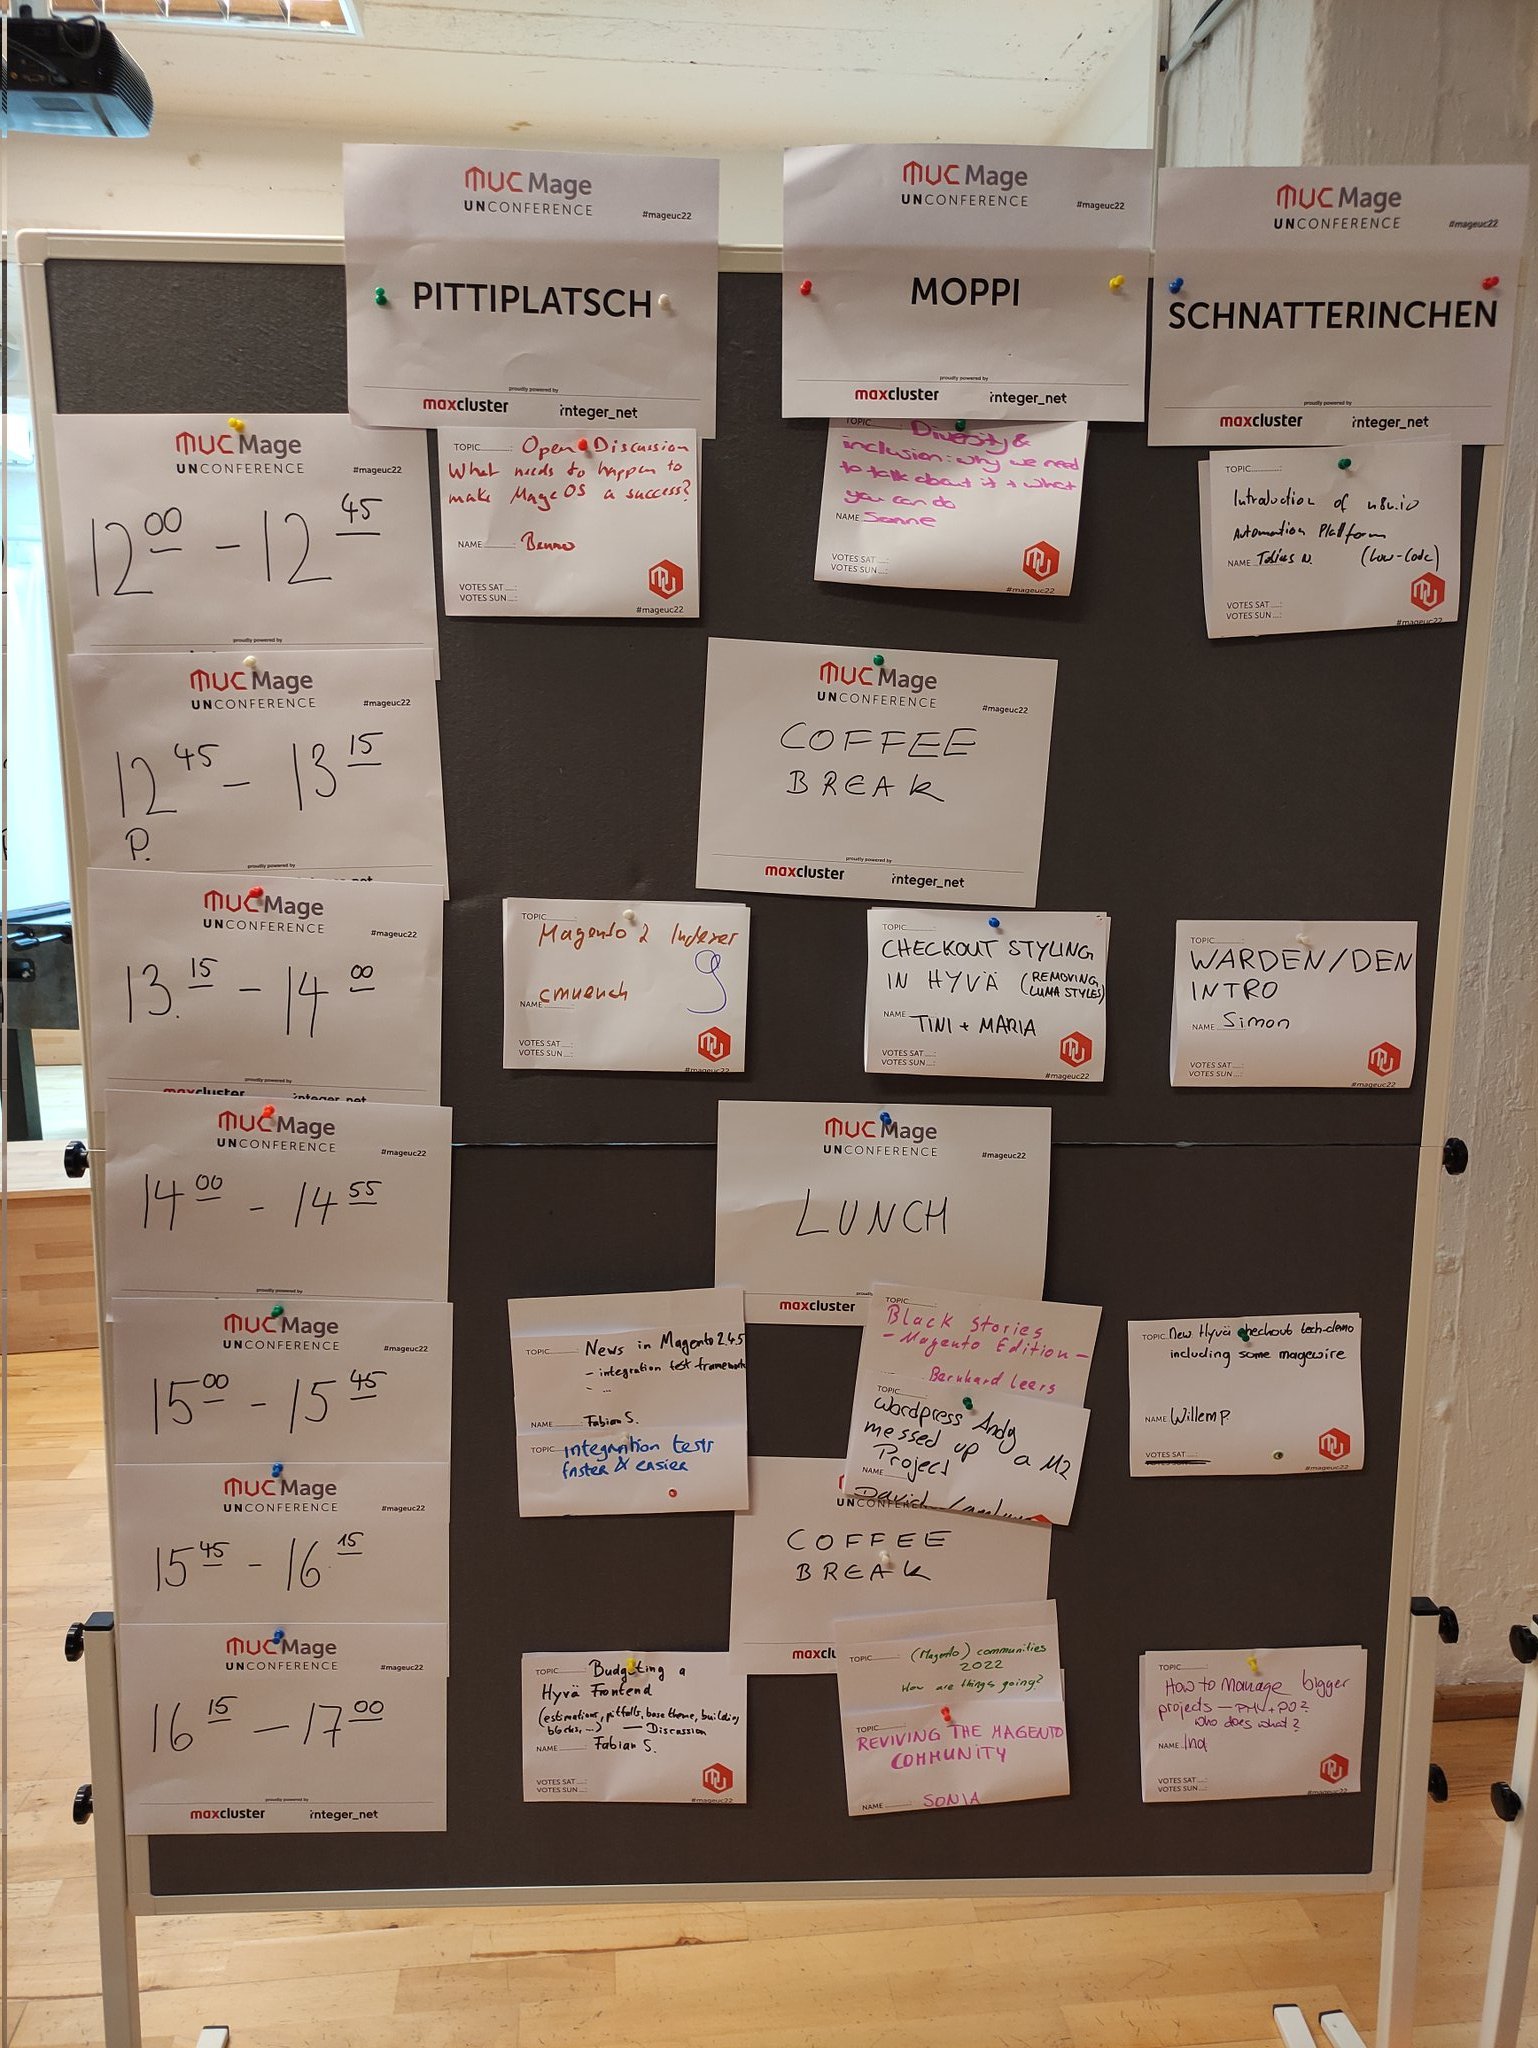 MUC Mage
UNCONFERENCE
#mageuc22
PITTIPLATSCH
proudly powered by
maxcluster
integer_net
MUC Mage
UNCONFERENCE
#mageuc22
MOPPI
proudly powered by
maxcluster
integer_net
MUC Mage
UNCONFERENCE
#mageuc22
SCHNATTERINCHEN
proudly powered by
maxcluster
integer_net
MUC Mage
UNCONFERENCE
#mageuc22
12 00 - 12 45
proudly powered by
TOPIC Open Discussion
What needs to happen to
make MageOS a success?
NAME Benno
VOTES SAT
VOTES SUN
#mageuc22
TOPIC Diversity &
inclusion: why we need
to talk about it + what
you can do
NAME Sanne
VOTES SAT
VOTES SUN
#mageuc22
TOPIC
Introduction of n8n.io
Automation Platform
NAME Tobias N. (Low-Code)
VOTES SAT
VOTES SUN
#mageuc22
MUC Mage
UNCONFERENCE
#mageuc22
12 45 - 13 15
P.
proudly powered by
MUC Mage
UNCONFERENCE
#mageuc22
COFFEE
BREAK
proudly powered by
maxcluster
integer_net
MUC Mage
UNCONFERENCE
#mageuc22
13 15 - 14 00
proudly powered by
maxcluster
integer_net
TOPIC
Magento 2 Indexer
NAME cmuench
VOTES SAT
VOTES SUN
#mageuc22
TOPIC
CHECKOUT STYLING
IN HYVÄ (REMOVING
LUMA STYLES)
NAME TINI + MARIA
VOTES SAT
VOTES SUN
#mageuc22
TOPIC
WARDEN/DEN
INTRO
NAME Simon
VOTES SAT
VOTES SUN
#mageuc22
MUC Mage
UNCONFERENCE
#mageuc22
14 00 - 14 55
proudly powered by
MUC Mage
UNCONFERENCE
#mageuc22
LUNCH
maxcluster
MUC Mage
UNCONFERENCE
#mageuc22
15 00 - 15 45
TOPIC News in Magento 2.4.5
- integration test framework
- ...
NAME Fabian S.
TOPIC integration tests
faster & easier
TOPIC
Black Stories
- Magento Edition -
Bernhard Leers
TOPIC
Wordpress Andy
messed up a M2
Project
NAME
David
TOPIC New Hyvä checkout tech-demo
including some magewire
NAME Willem P.
VOTES SAT
VOTES SUN
#mageuc22
MUC Mage
UNCONFERENCE
#mageuc22
15 45 - 16 15
UNCONFERENCE
COFFEE
BREAK
maxclu
MUC Mage
UNCONFERENCE
#mageuc22
16 15 - 17 00
proudly powered by
maxcluster
integer_net
TOPIC Budgeting a
Hyvä Frontend
(estimations, pitfalls, base theme, building
blocks, ...) — Discussion
NAME Fabian S.
VOTES SAT
VOTES SUN
#mageuc22
TOPIC (Magento) communities
2022
How are things going?
TOPIC
REVIVING THE MAGENTO
COMMUNITY
NAME SONJA
TOPIC
How to Manage bigger
projects — PM + PO?
Who does what?
NAME Ina
VOTES SAT
VOTES SUN
#mageuc22